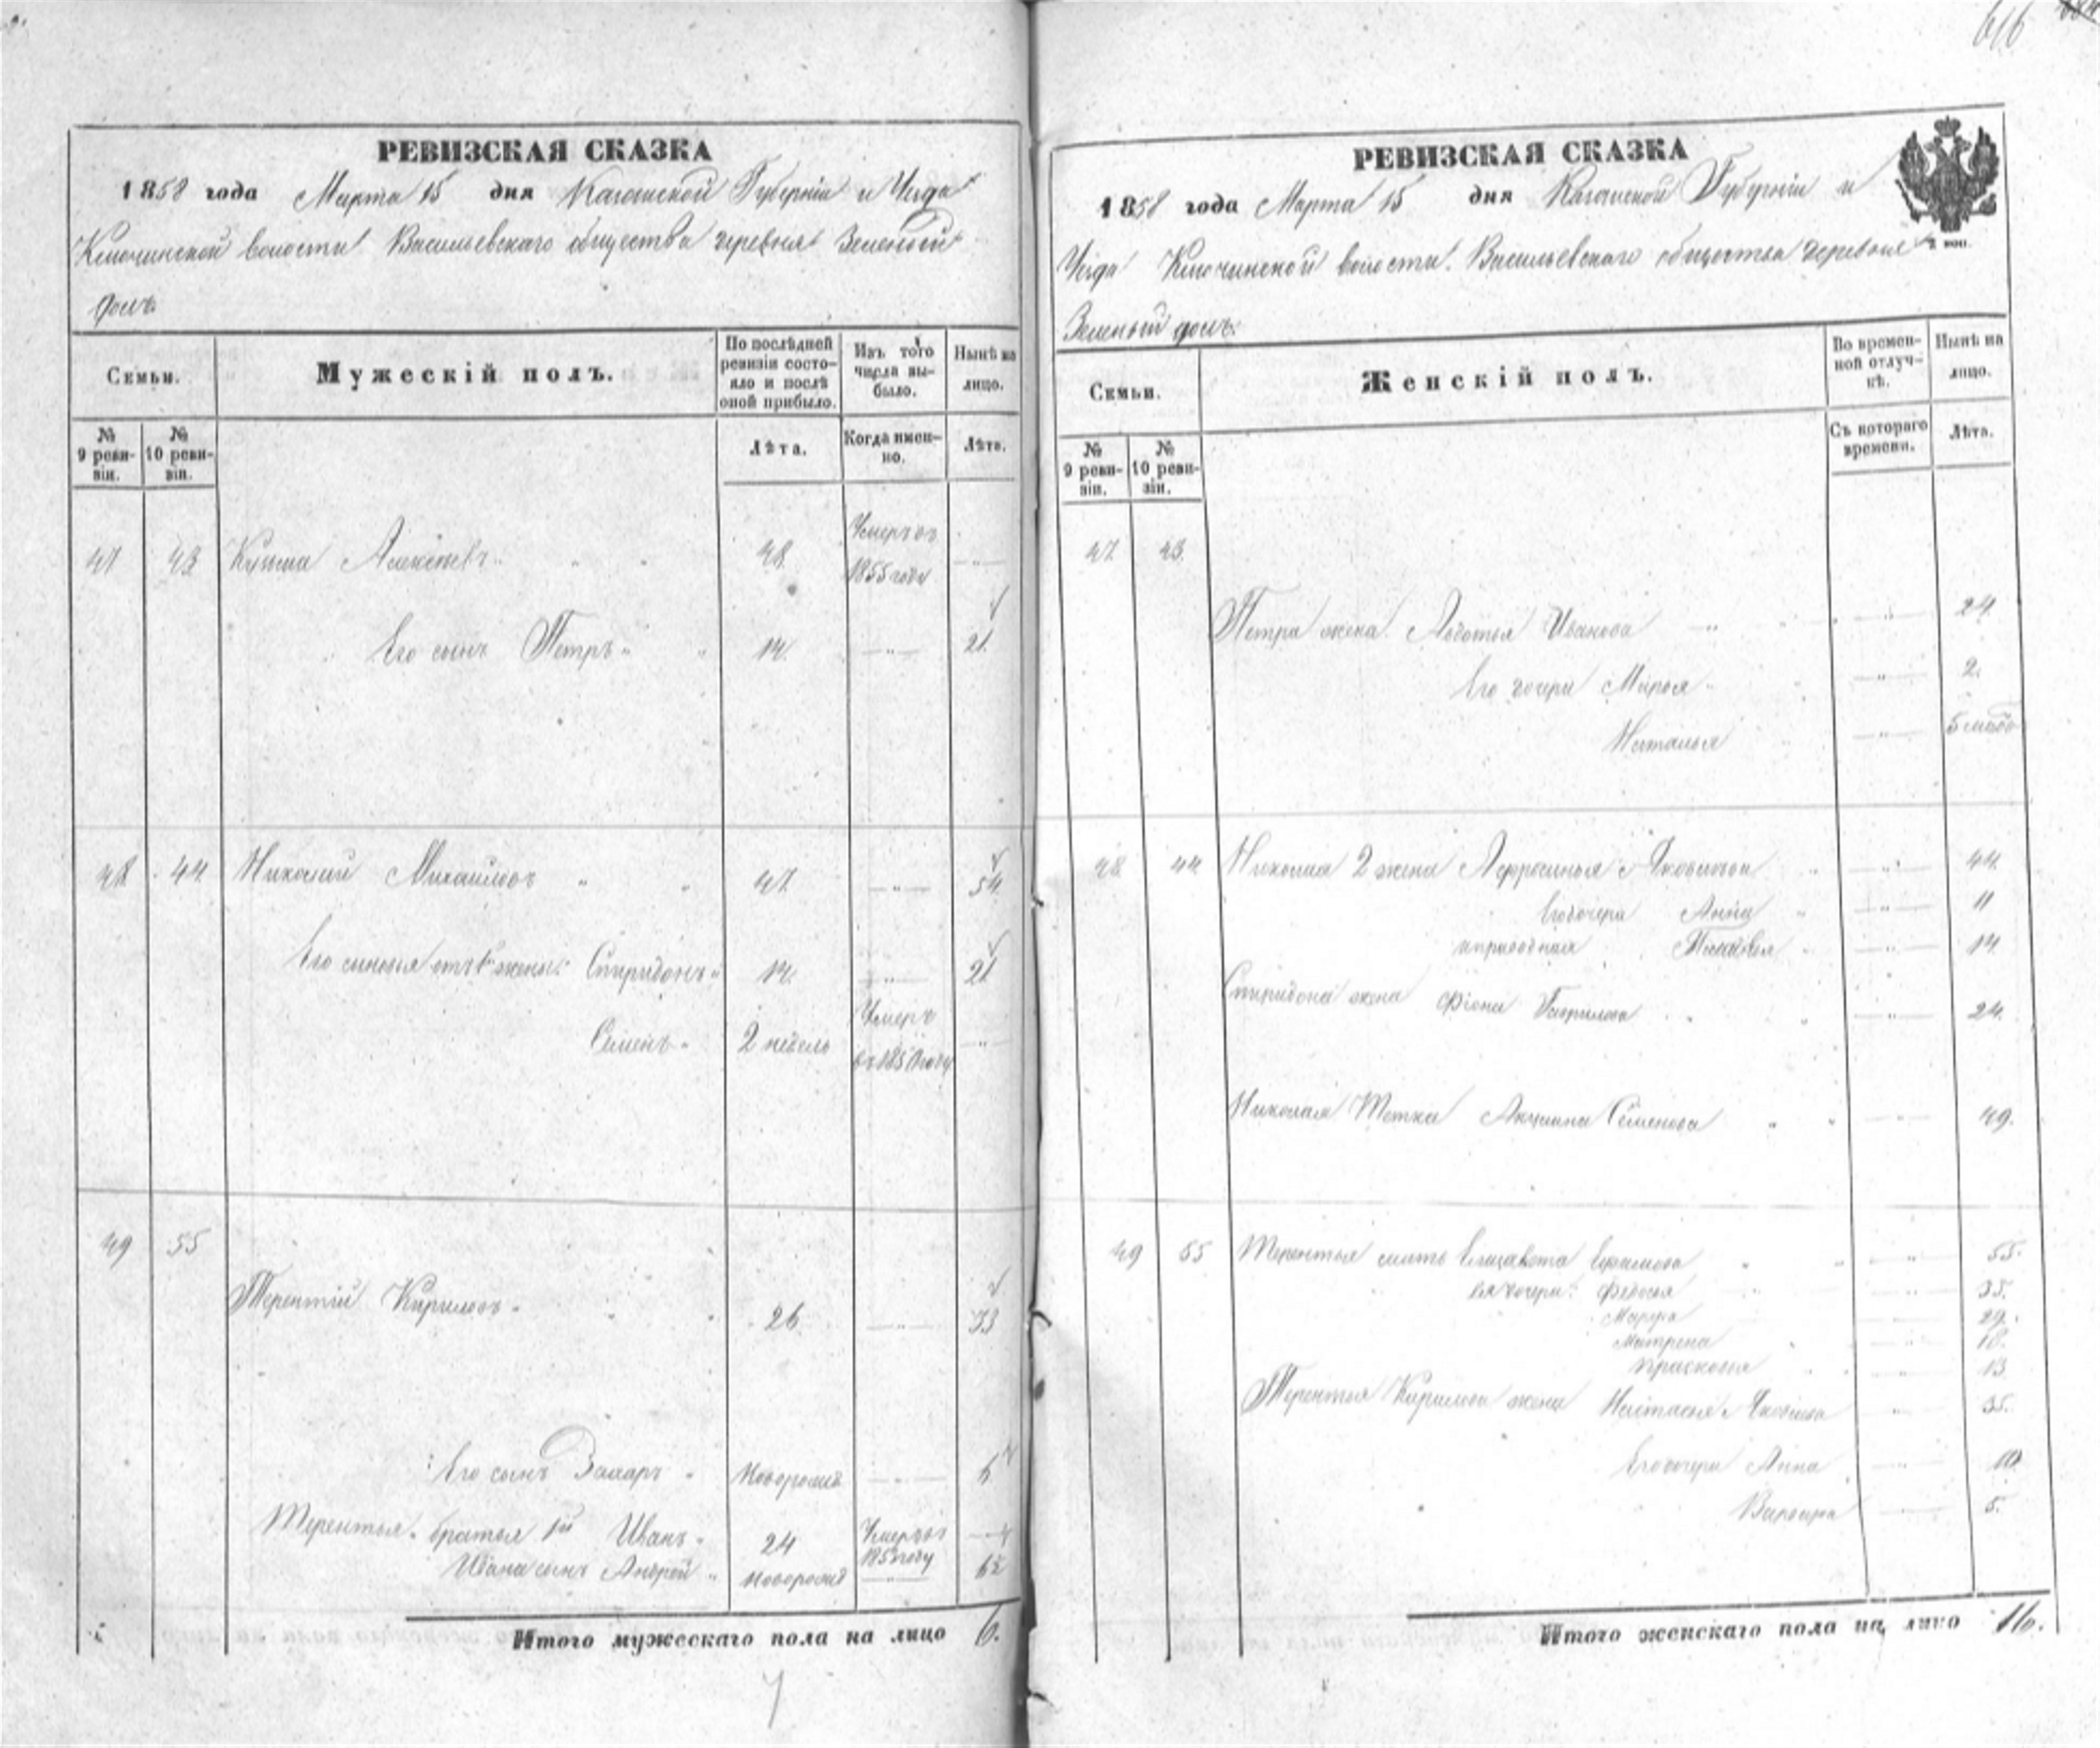 616
РЕВИЗСКАЯ СКАЗКА
1858 года Марта 15 дня Казанской Губернiи и Уезда
Ключинской волости Васильевскаго общества деревня Зеленой
долъ
Семьи.
Мужескiй полъ.
По послѣдней ревизiи состояло и послѣ оной прибыло.
Изъ того числа выбыло.
Нынѣ на лицо.
№ 9 ревизiи.
№ 10 ревизiи.
Лѣта.
Когда именно.
Лѣта.
47 43 48 Умеръ въ 1855 году
Его сынъ Петръ 14 21
48 44 Николай Михайловъ 47 54
Его сыновья отъ 1 жены: Спиридонъ 14 21
Семенъ 2 недель Умеръ
49 55
Терентiй Кириловъ 26 33
Его сынъ Захаръ Новорожд
Терентья братья 1й Иванъ 24 Умеръ въ
Ивана сынъ Андрей новорожд
Итого мужескаго пола на лицо 6.
7
РЕВИЗСКАЯ СКАЗКА
1858 года Марта 15 дня Казанской Губернiи и
Уезда Ключинской волости Васильевскаго общества деревня
Зеленый долъ.
Семьи.
Женскiй полъ.
Во временной отлучкѣ.
Нынѣ на лицо.
№ 9 ревизiи.
№ 10 ревизiи.
Съ котораго времени.
Лѣта.
47 43
Петра жена Авдотья Иванова 24
Его дочери Марья 2
Наталья 5
48 44 Николая 2 жена Афросинья Яковлева 44
Его дочери Анна 11
14
Спиридона жена Фiона Гаврилова 24
Николая Тетка Акулина Семенова 49
49 55 Терентья мать Елизавета Ефимова 55
ея дочери: Федосья 35
Марфа 29
Матрена 18
Прасковья 13
Терентья Кирилова жена Настасья Яковлева 35
Его дочери Анна 10
Варвара 5
Итого женскаго пола на лицо 16.